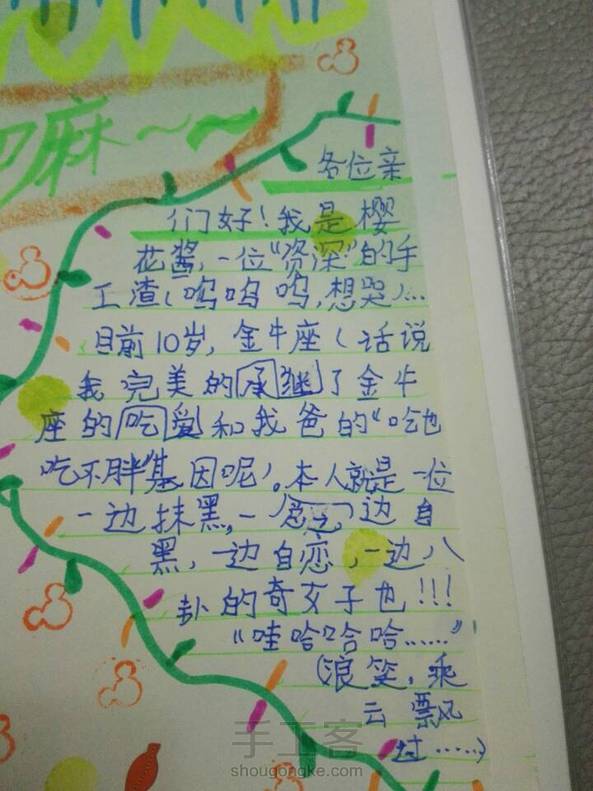 麻~~
各位亲
们好！我是樱
花酱，一位"资深"的手
工渣（呜呜呜，想哭）…
目前10岁，金牛座（话说
我完美的承继了金牛
座的吃爱和我爸的"吃也
吃不胖"基因呢）。本人就是一位
一边抹黑，一边自
黑，一边自恋，一边八
卦的奇女子也！！！
"哇哈哈哈……"
（浪笑，乘
云飘
过……）
手工客
shougongke.com